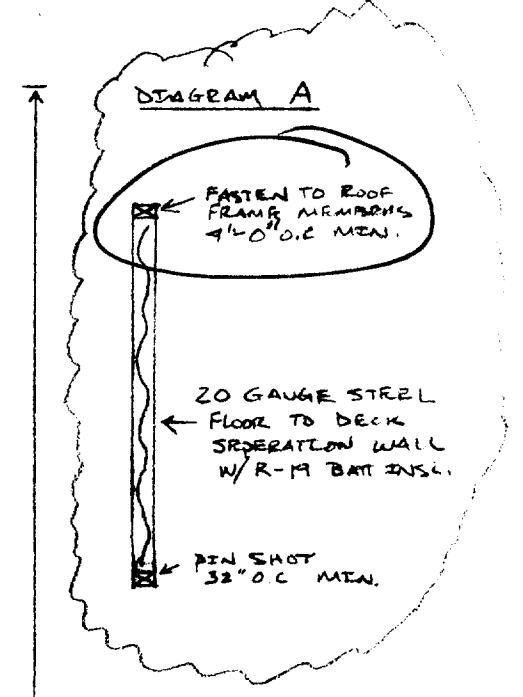 DIAGRAM A
FASTEN TO ROOF
FRAME MEMBERS
4'-0" O.C MIN.
20 GAUGE STEEL
FLOOR TO DECK
SEPERATION WALL
W/ R-19 BATT INSL.
PIN SHOT
32" O.C MIN.